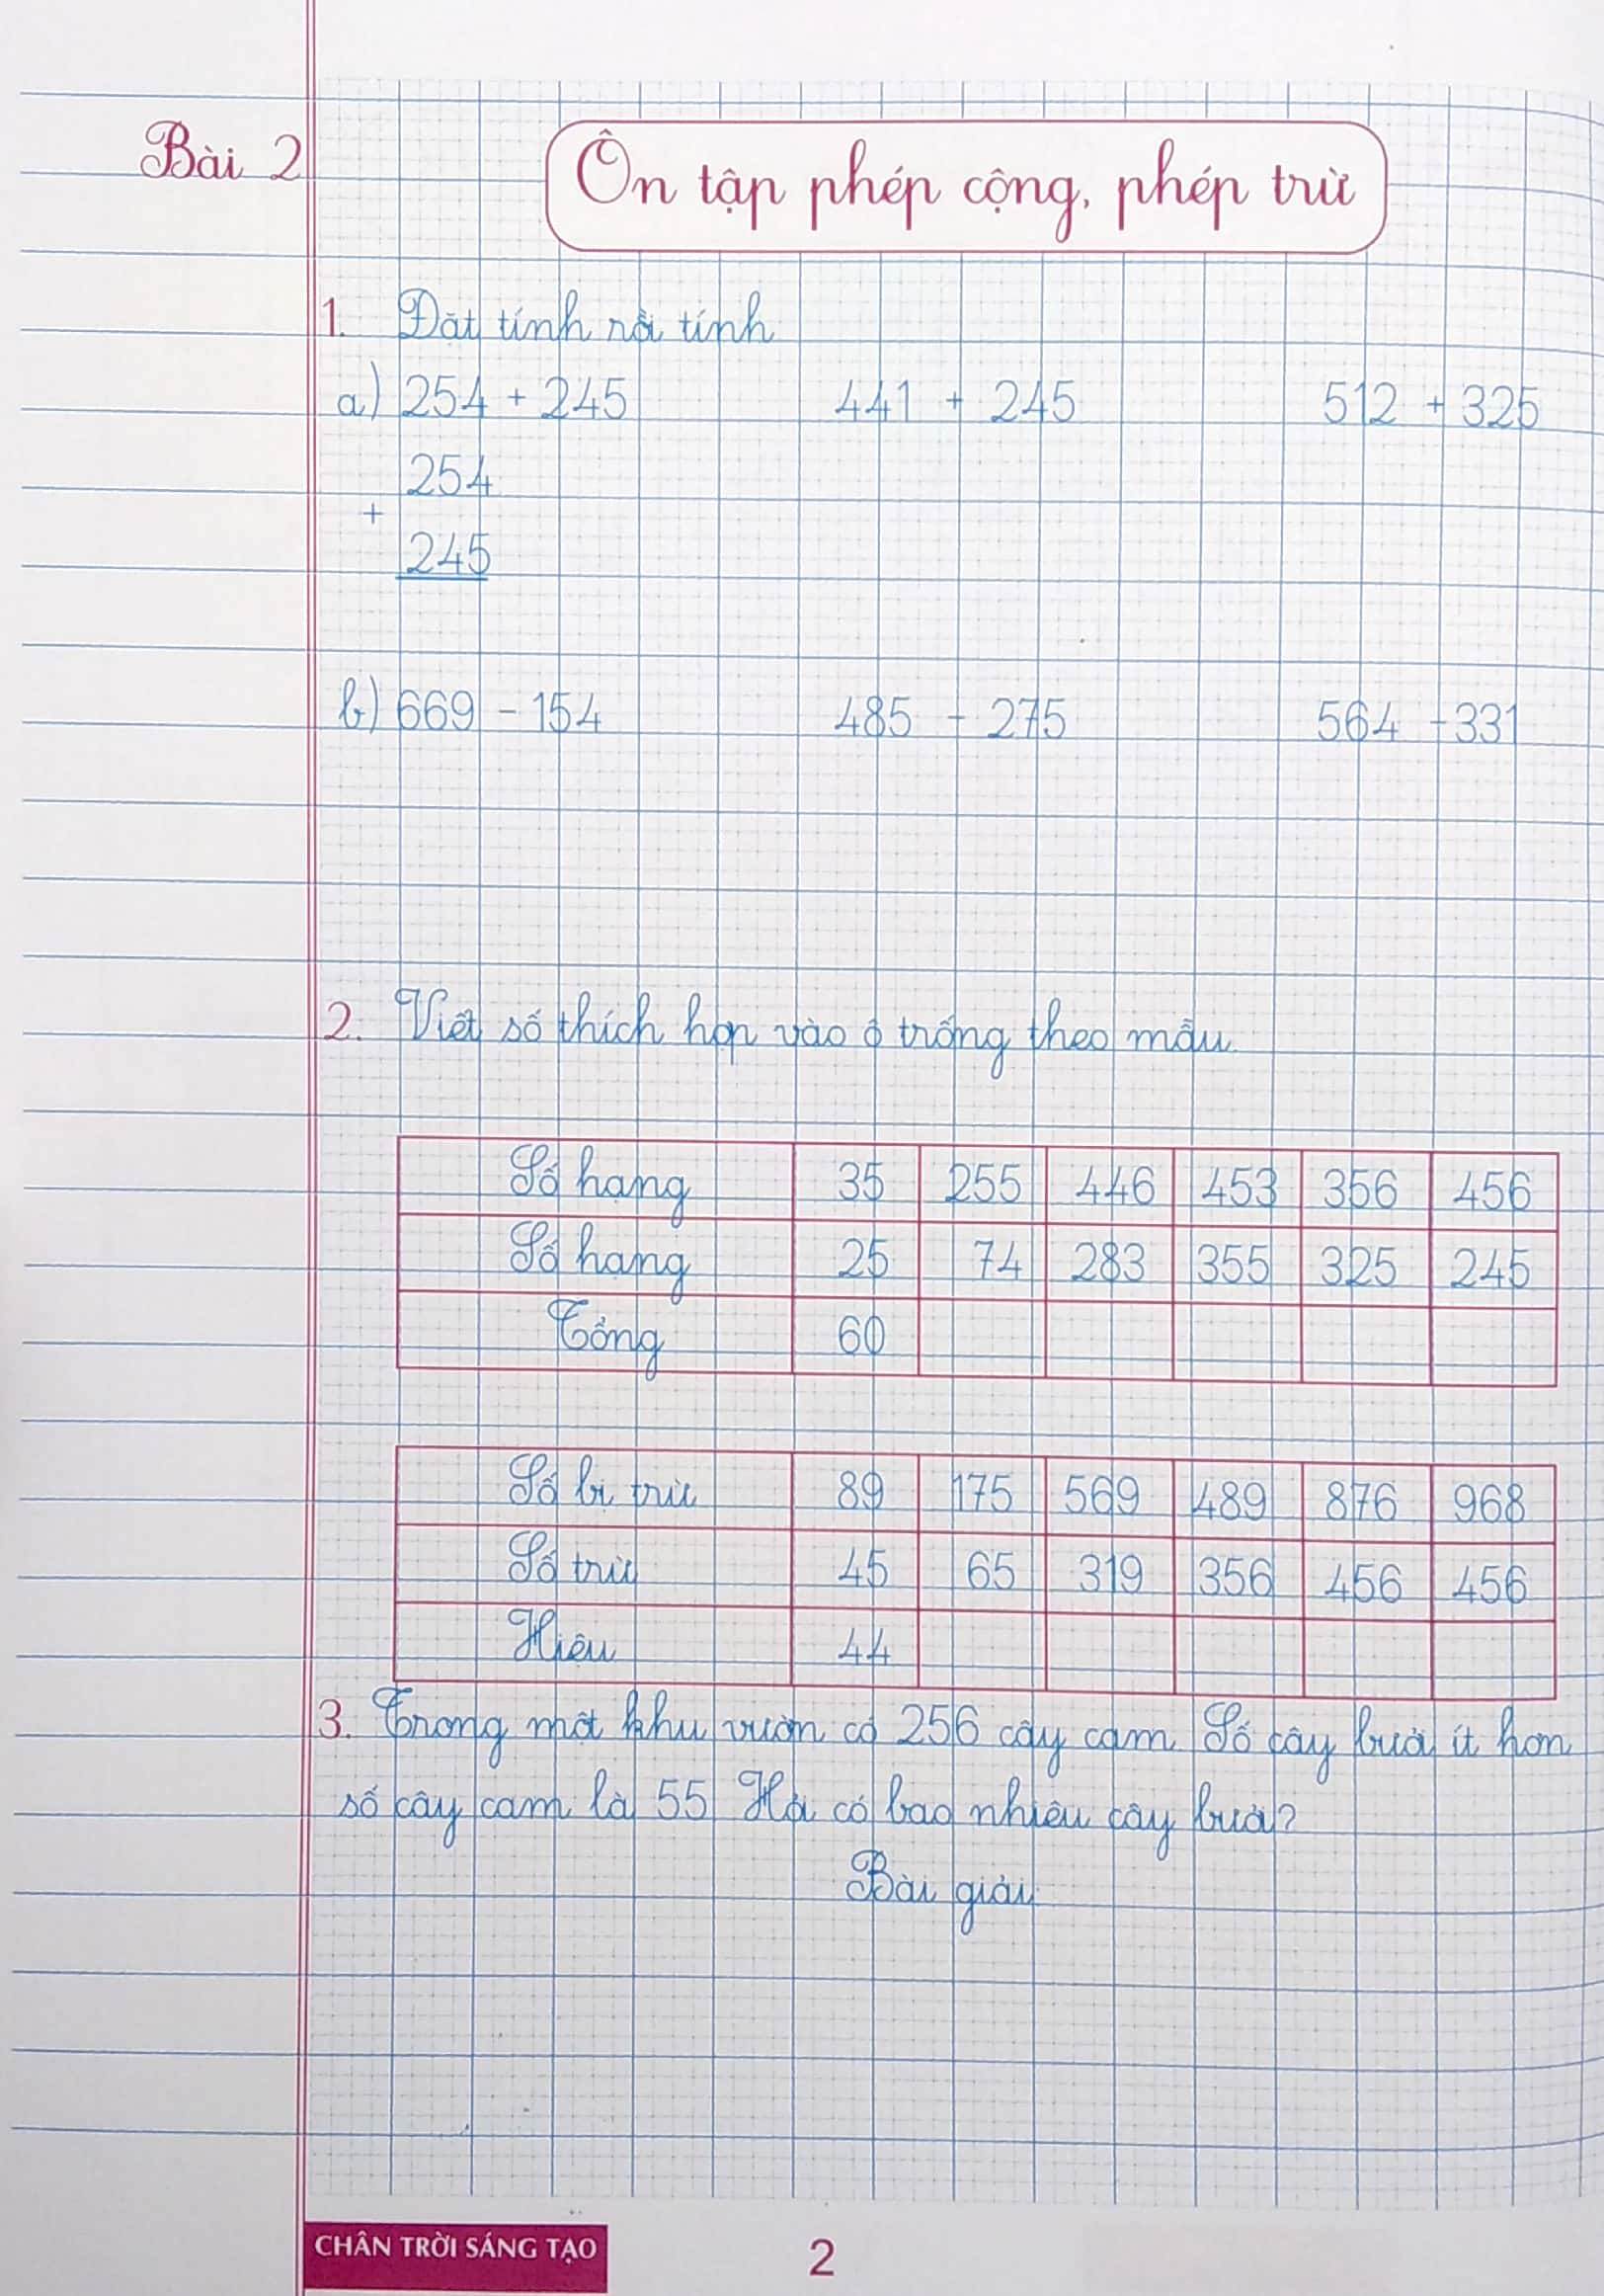 Bài 2
Ôn tập phép cộng, phép trừ
1. Đặt tính rồi tính
a) 254 + 245 441 + 245 512 + 325
254
+
245
b) 669 - 154 485 - 275 564 - 331
2. Viết số thích hợp vào ô trống theo mẫu.
Số hạng 35 255 446 453 356 456
Số hạng 25 74 283 355 325 245
Tổng 60
Số bị trừ 89 175 569 489 876 968
Số trừ 45 65 319 356 456 456
Hiệu 44
3. Trong một khu vườn có 256 cây cam. Số cây bưởi ít hơn
số cây cam là 55. Hỏi có bao nhiêu cây bưởi?
Bài giải
CHÂN TRỜI SÁNG TẠO
2